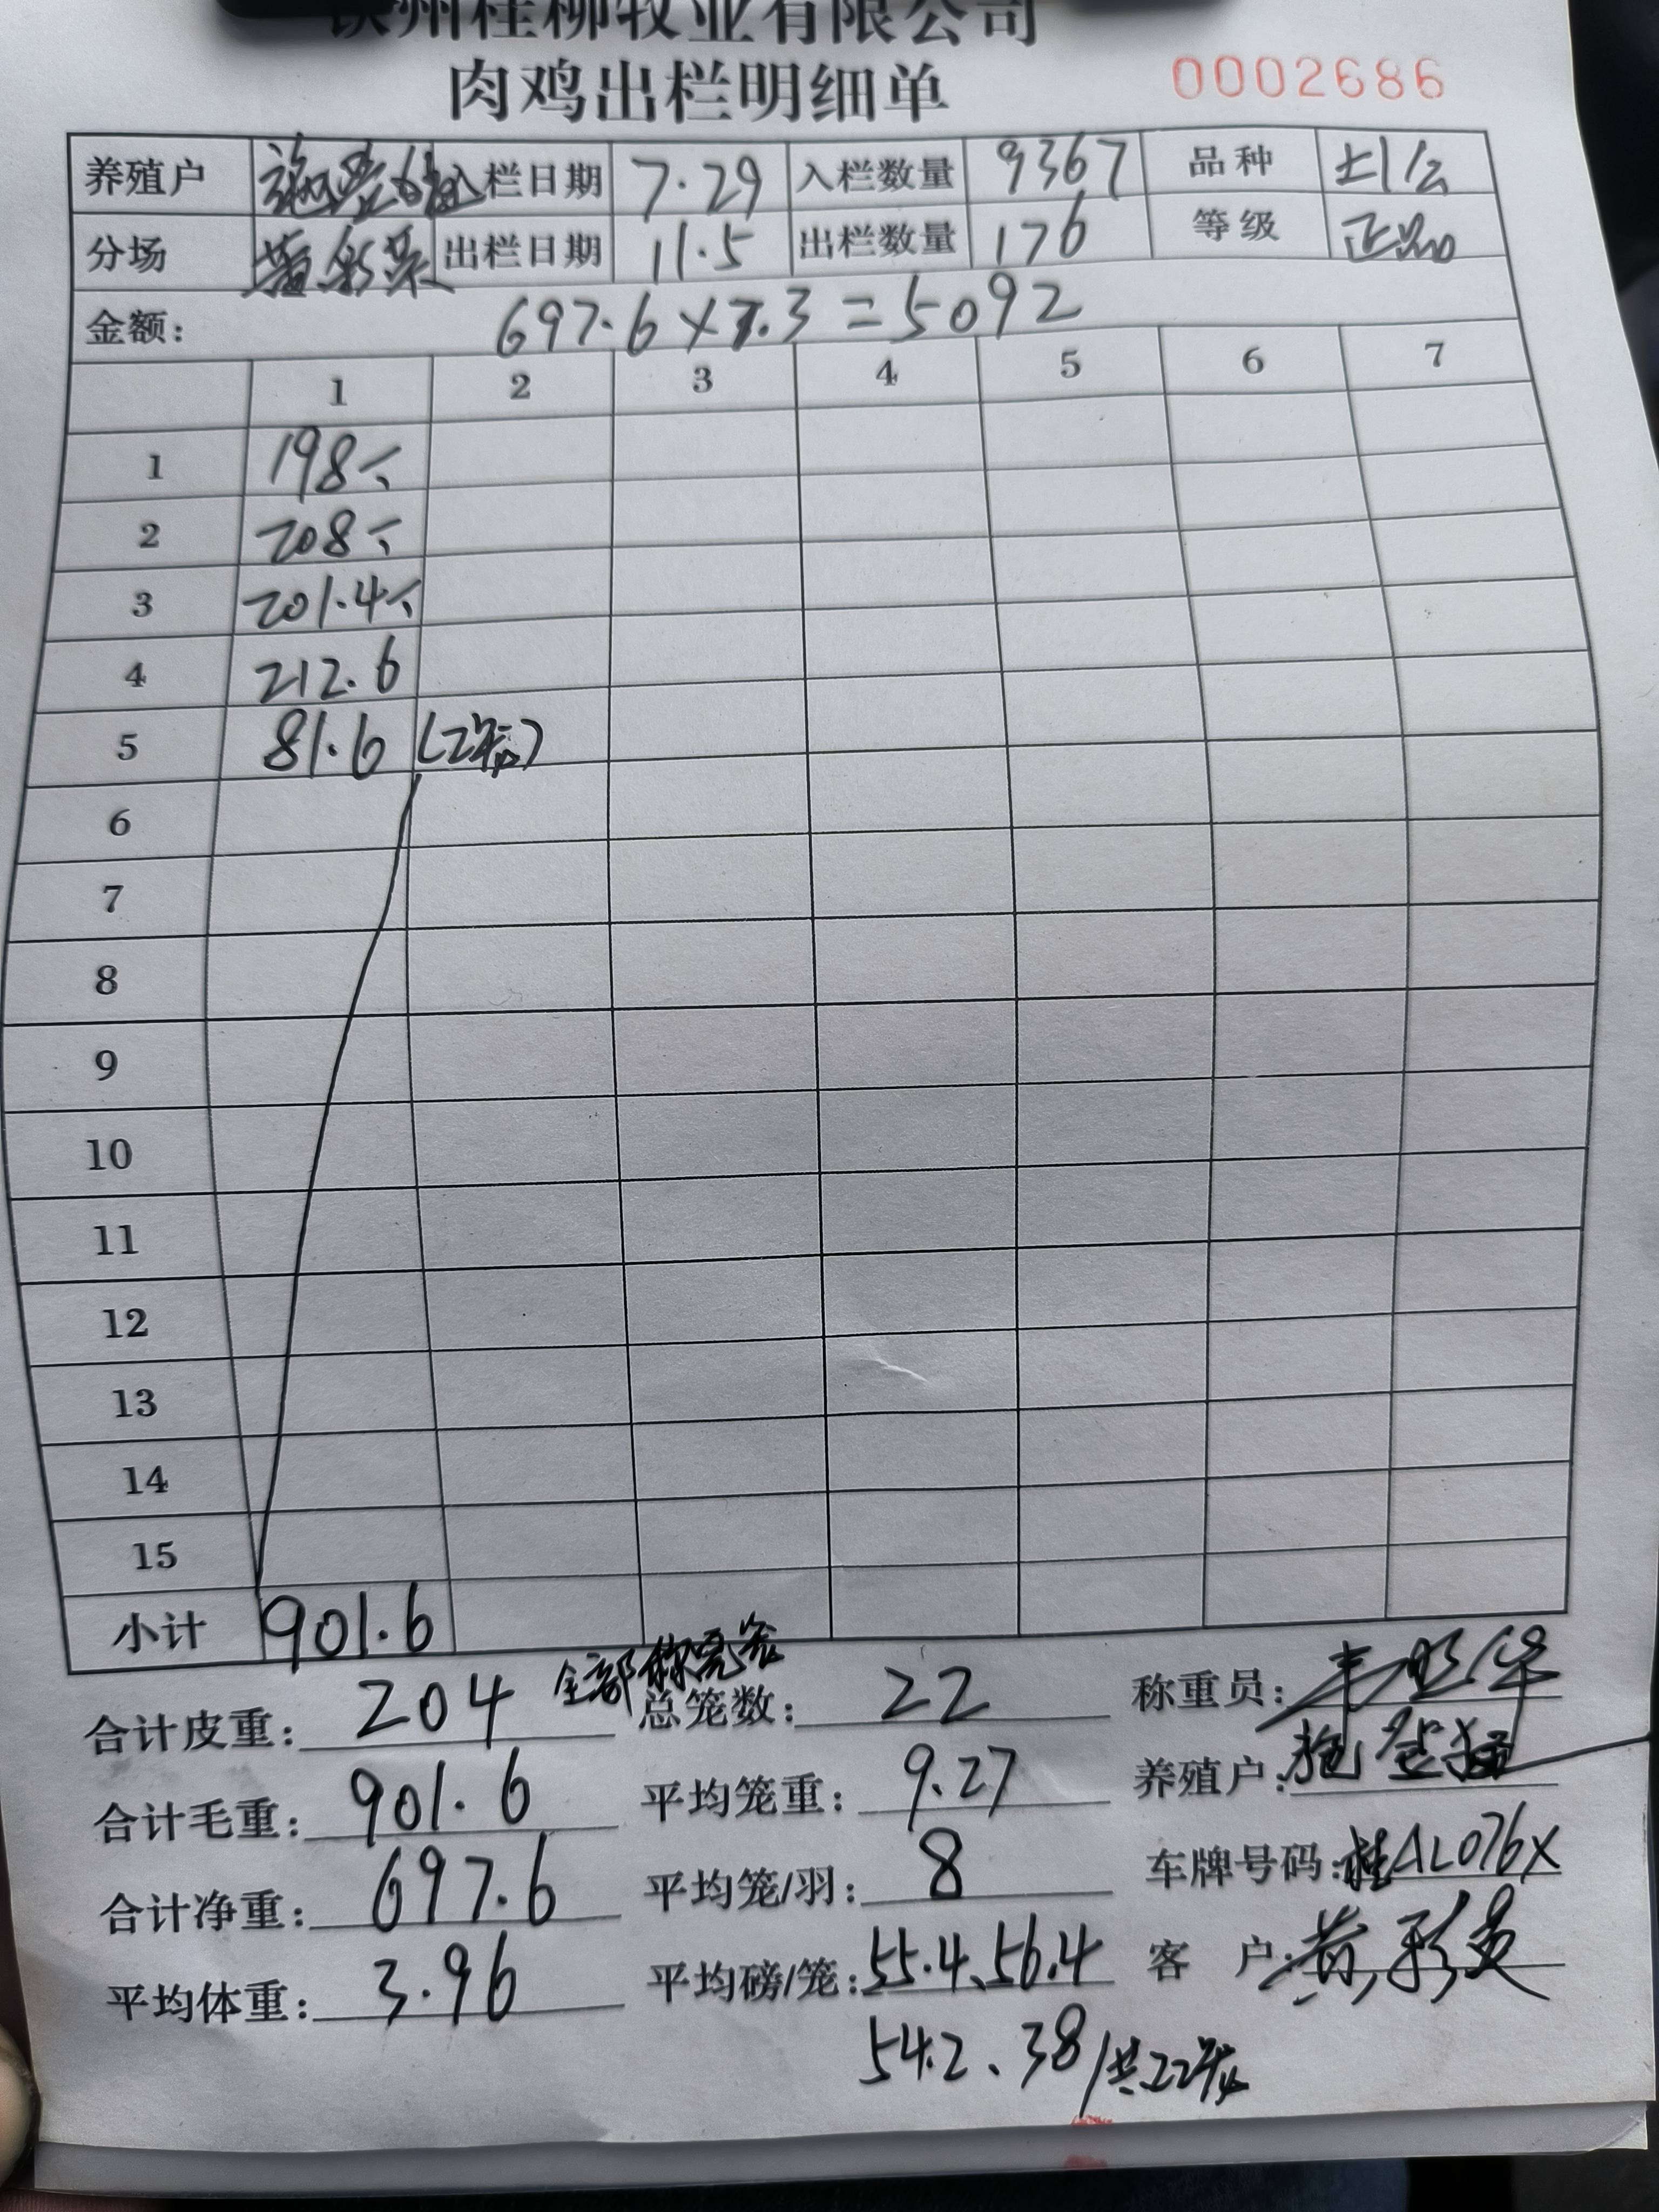 钦州桂柳牧业有限公司
肉鸡出栏明细单 0002686
养殖户 入栏日期 7.29 入栏数量 9367 品种 土1公
分场 出栏日期 11.5 出栏数量 176 等级 正品
金额: 697.6×7.3=5092
1 2 3 4 5 6 7
1 198
2 208
3 201.4
4 212.6
5 81.6
6
7
8
9
10
11
12
13
14
15
小计 901.6
合计皮重: 204 全部称完笼 总笼数: 22 称重员:
合计毛重: 901.6 平均笼重: 9.27 养殖户:
合计净重: 697.6 平均笼/羽: 8 车牌号码: 桂AL076X
平均体重: 3.96 平均磅/笼: 55.4、56.4 客户: 黄
54.2、38/共22